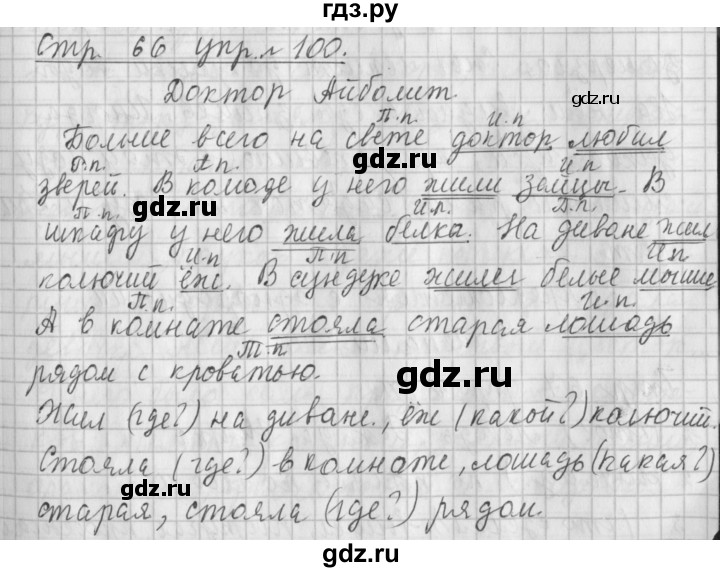 гдз.рф
Стр. 66 упр. № 100.
Доктор Айболит.
П.п И.п
Больше всего на свете доктор любил
П.п. П.п. И.п
зверей. В комоде у него жили зайцы. В
П.п. И.п. П.п.
шкафу у него жила белка. На диване жил
И.п П.п И.п
колючий ёж. В сундуке жили белые мыши
П.п. И.п.
А в комнате стояла старая лошадь
Т.п
рядом с кроватью.
Жил (где?) на диване., ёж (какой?) колючий.
Стояла (где?) в комнате, лошадь (какая?)
старая, стояла (где?) рядом.
gdz.ru
gdz.ru
gdz.ru
gdz.ru
gdz.ru